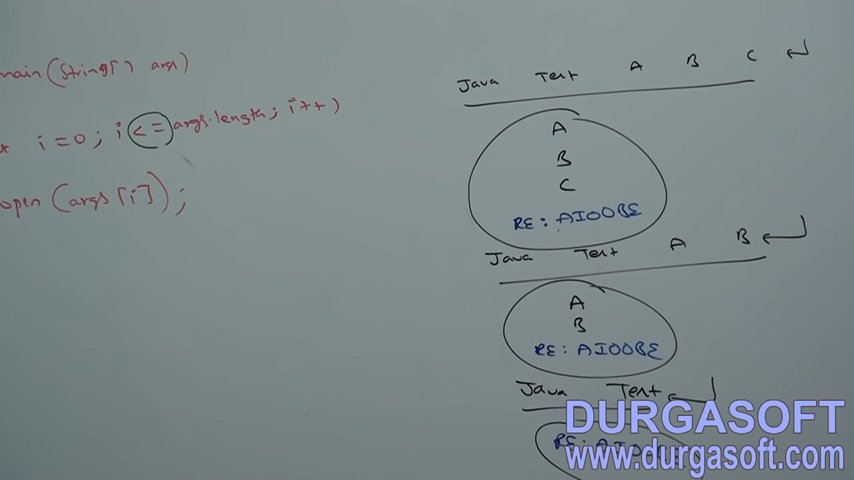 main(String[] args)
i=0; i<=args.length; i++)
open(args[i]);
Java Test A B C ↵
A
B
C
RE: AIOOBE
Java Test A B ↵
A
B
RE: AIOOBE
Java Test ↵
RE:
DURGASOFT
www.durgasoft.com